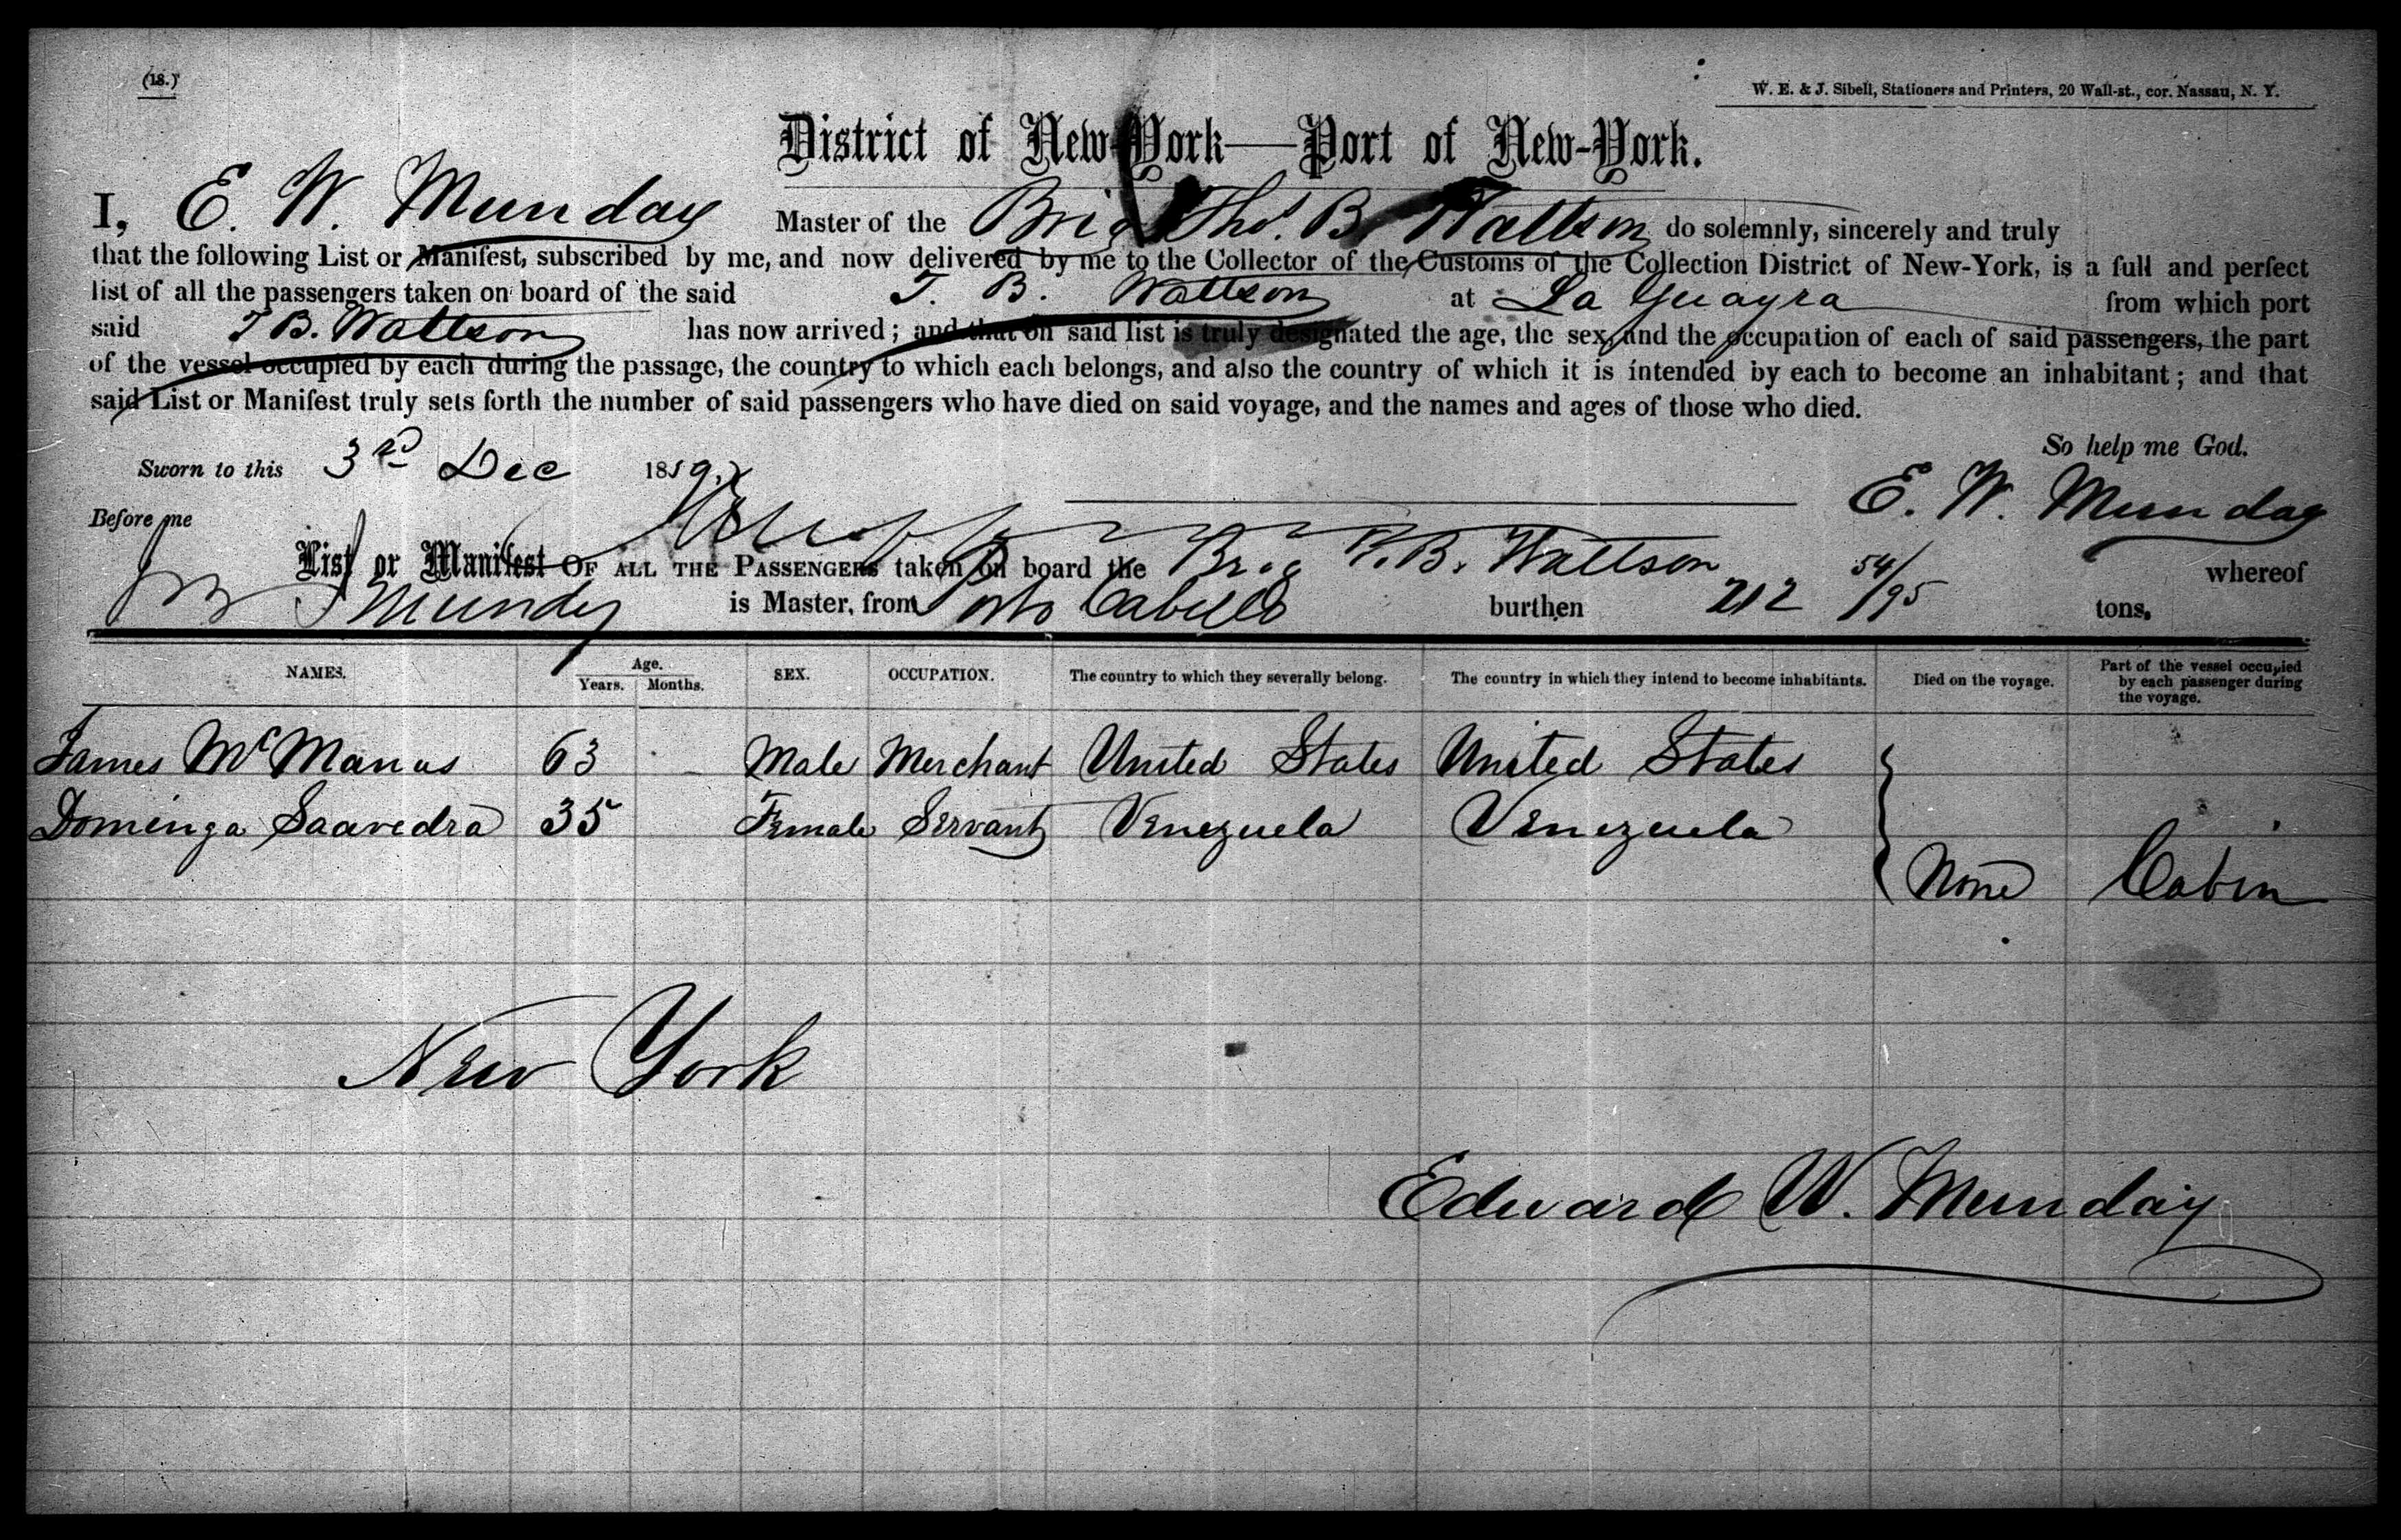 (18.)
W. E. & J. Sibell, Stationers and Printers, 20 Wall-st., cor. Nassau, N. Y.
District of New-York—Port of New-York.
I, E. W. Munday Master of the Brig Thos. B. Wattson do solemnly, sincerely and truly
that the following List or Manifest, subscribed by me, and now delivered by me to the Collector of the Customs of the Collection District of New-York, is a full and perfect
list of all the passengers taken on board of the said T. B. Wattson at La Guayra from which port
said T B. Wattson has now arrived; and that on said list is truly designated the age, the sex, and the occupation of each of said passengers, the part
of the vessel occupied by each during the passage, the country to which each belongs, and also the country of which it is intended by each to become an inhabitant; and that
said List or Manifest truly sets forth the number of said passengers who have died on said voyage, and the names and ages of those who died.
So help me God.
Sworn to this 3rd Dec 1859.
E. W. Munday
Before me
List or Manifest OF ALL THE PASSENGERS taken on board the Brig T. B. Wattson whereof
Munday is Master, from Porto Cabello burthen 212 54/95 tons.
NAMES. Age. Years. Months. SEX. OCCUPATION. The country to which they severally belong. The country in which they intend to become inhabitants. Died on the voyage. Part of the vessel occupied by each passenger during the voyage.
James McManus 63 Male Merchant United States United States
Dominga Saavedra 35 Female Servant Venezuela Venezuela
None Cabin
New York
Edward W. Munday